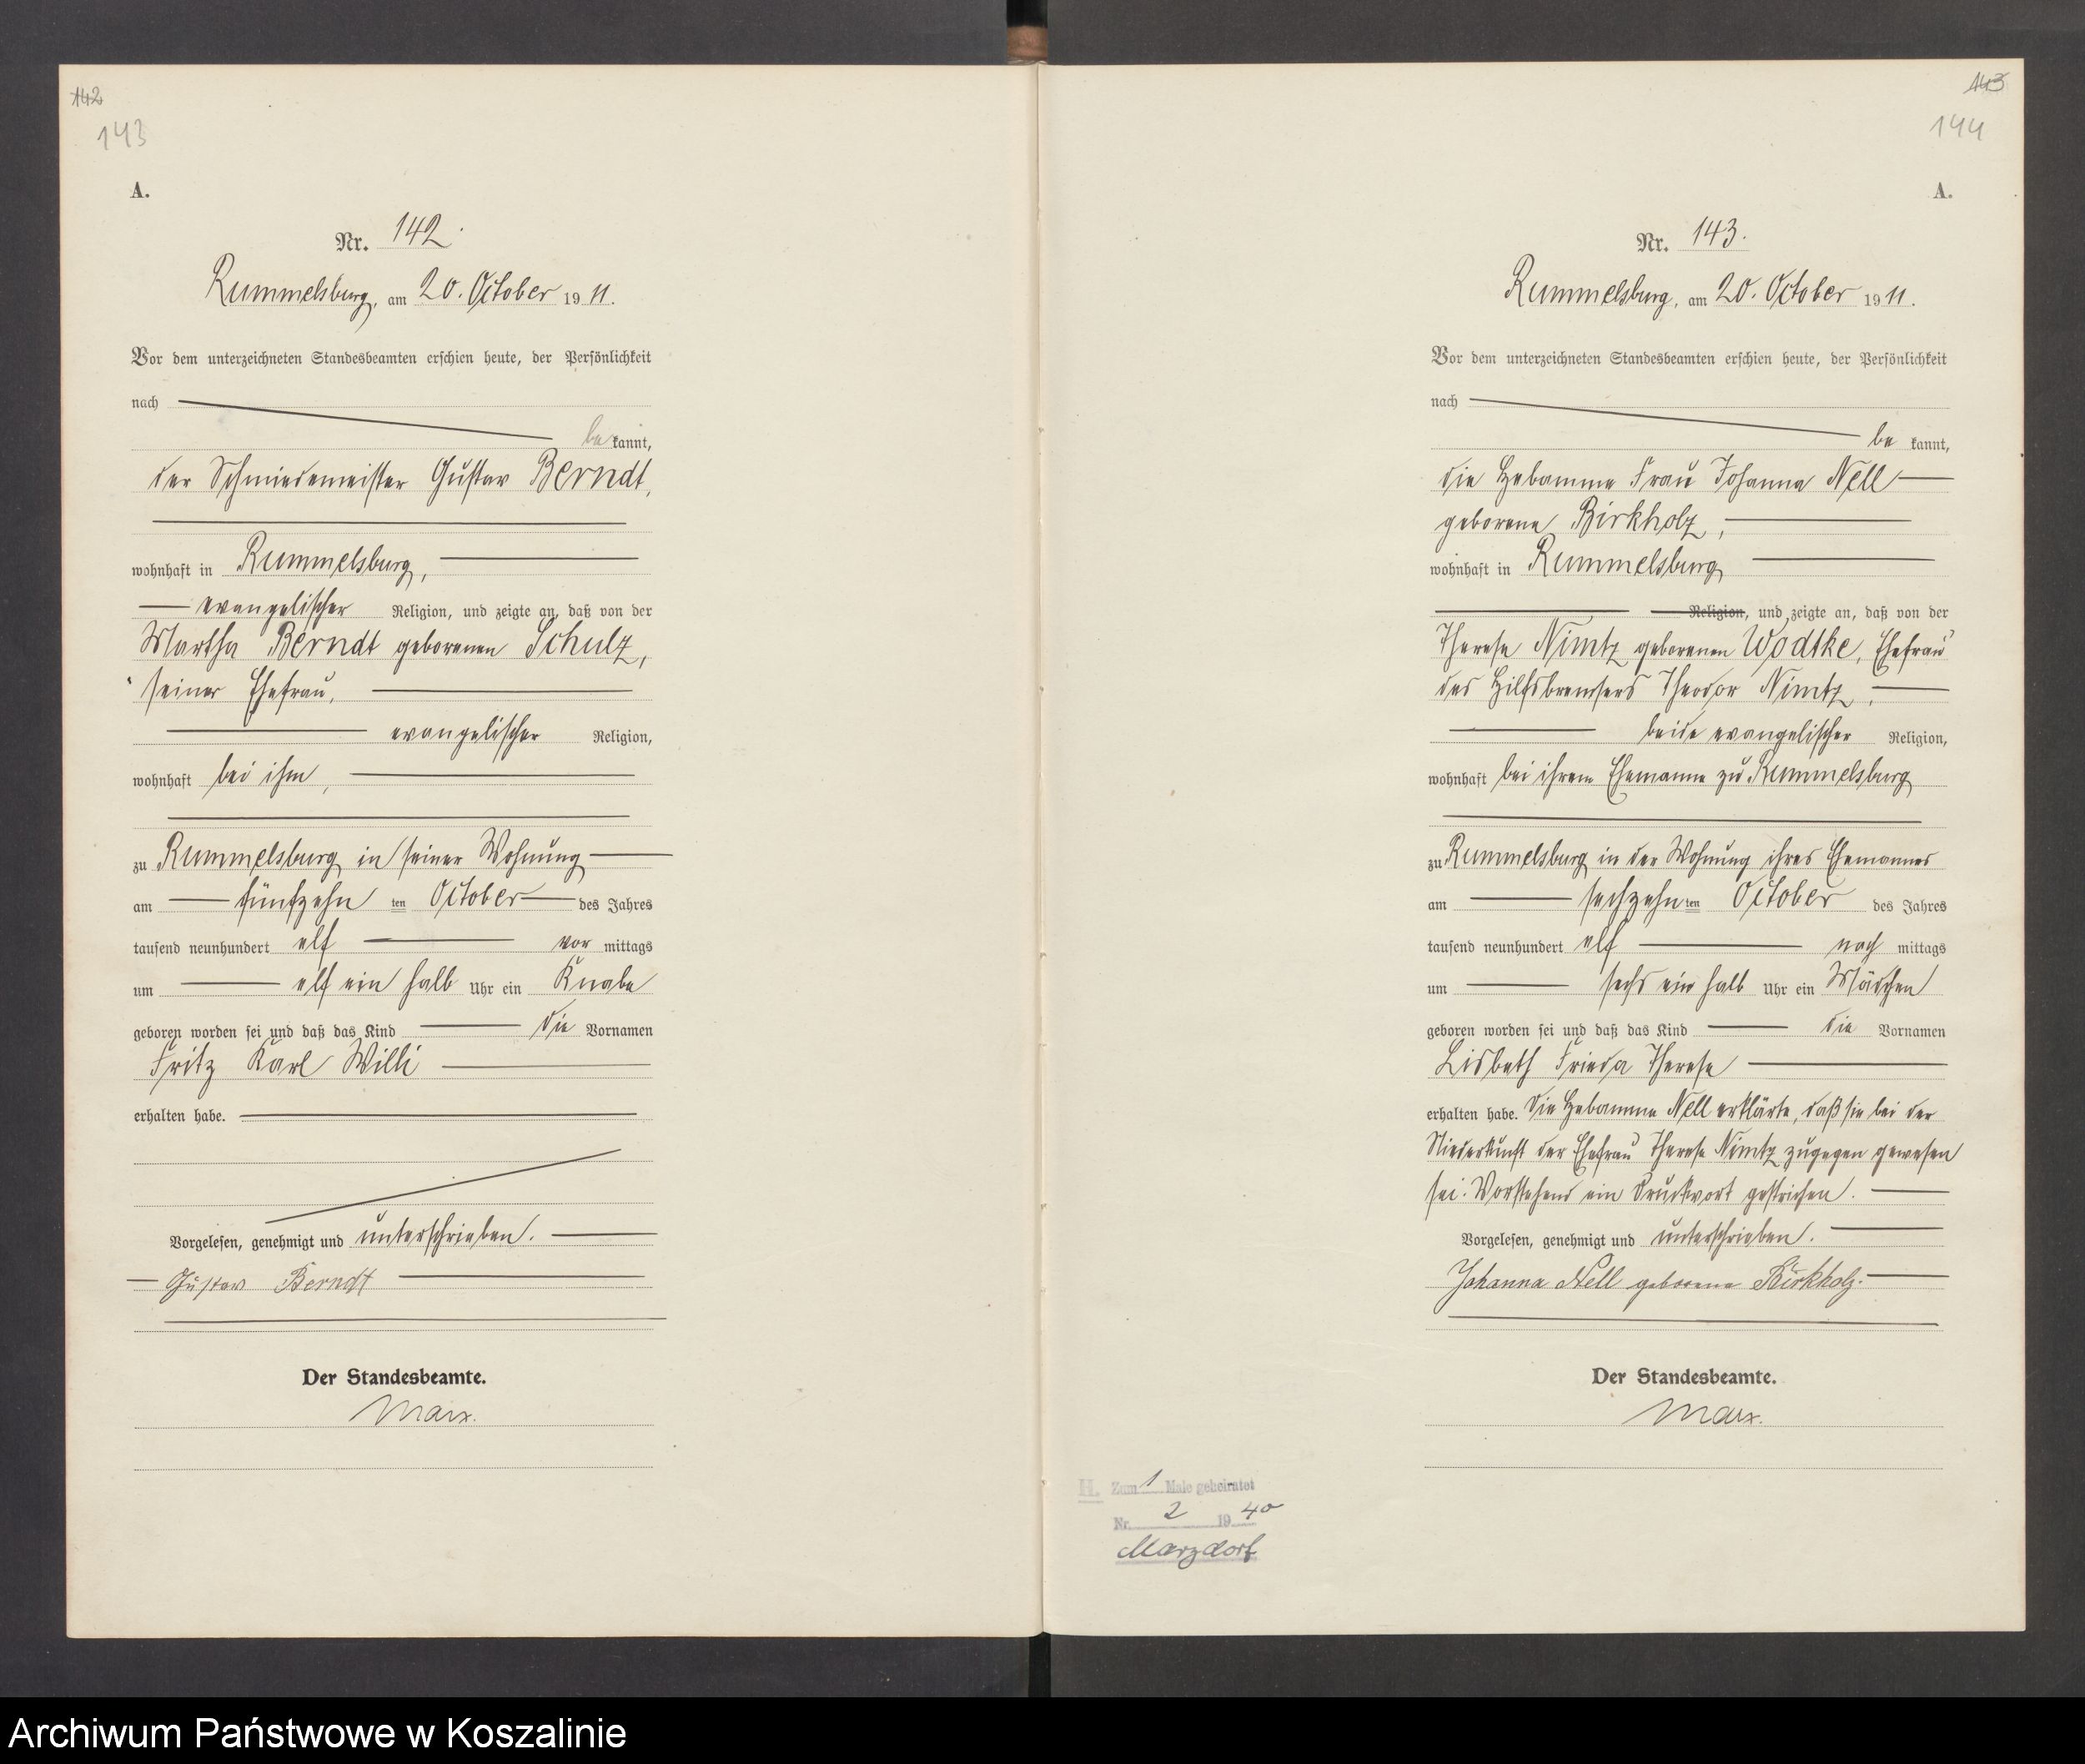 142
143
A.
Nr. 142.
Rummelsburg, am 20. October 1911.
Vor dem unterzeichneten Standesbeamten erschien heute, der Persönlichkeit
nach
bekannt,
der Schmiedemeister Gustav Berndt,
wohnhaft in Rummelsburg,
evangelischer Religion, und zeigte an, daß von der
Martha Berndt geborenen Schulz,
seiner Ehefrau,
evangelischer Religion,
wohnhaft bei ihm,
zu Rummelsburg in seiner Wohnung
am fünfzehn ten October des Jahres
tausend neunhundert elf vor mittags
um elf ein halb Uhr ein Knabe
geboren worden sei und daß das Kind die Vornamen
Fritz Karl Willi
erhalten habe.
Vorgelesen, genehmigt und unterschrieben.
Gustav Berndt
Der Standesbeamte.
Marx.
143
144
A.
Nr. 143.
Rummelsburg, am 20. October 1911.
Vor dem unterzeichneten Standesbeamten erschien heute, der Persönlichkeit
nach
be kannt,
die Hebamme Frau Johanna Nell
geborene Birkholz,
wohnhaft in Rummelsburg
Religion, und zeigte an, daß von der
Therese Nimtz geborenen Wodtke, Ehefrau
des Hilfsbremsers Theodor Nimtz,
beide evangelischer Religion,
wohnhaft bei ihrem Ehemanne zu Rummelsburg
zu Rummelsburg in der Wohnung ihres Ehemannes
am sechzehn ten October des Jahres
tausend neunhundert elf nach mittags
um sechs ein halb Uhr ein Mädchen
geboren worden sei und daß das Kind die Vornamen
Lisbeth Frieda Therese
erhalten habe. Die Hebamme Nell erklärte, daß sie bei der
Niederkunft der Ehefrau Therese Nimtz zugegen gewesen
sei. Vorstehend ein Druckwort gestrichen.
Vorgelesen, genehmigt und unterschrieben.
Johanna Nell geborene Birkholz.
Der Standesbeamte.
Marx.
H. Zum 1 Male geheiratet
Nr. 2 1940
Marzdorf
Archiwum Państwowe w Koszalinie